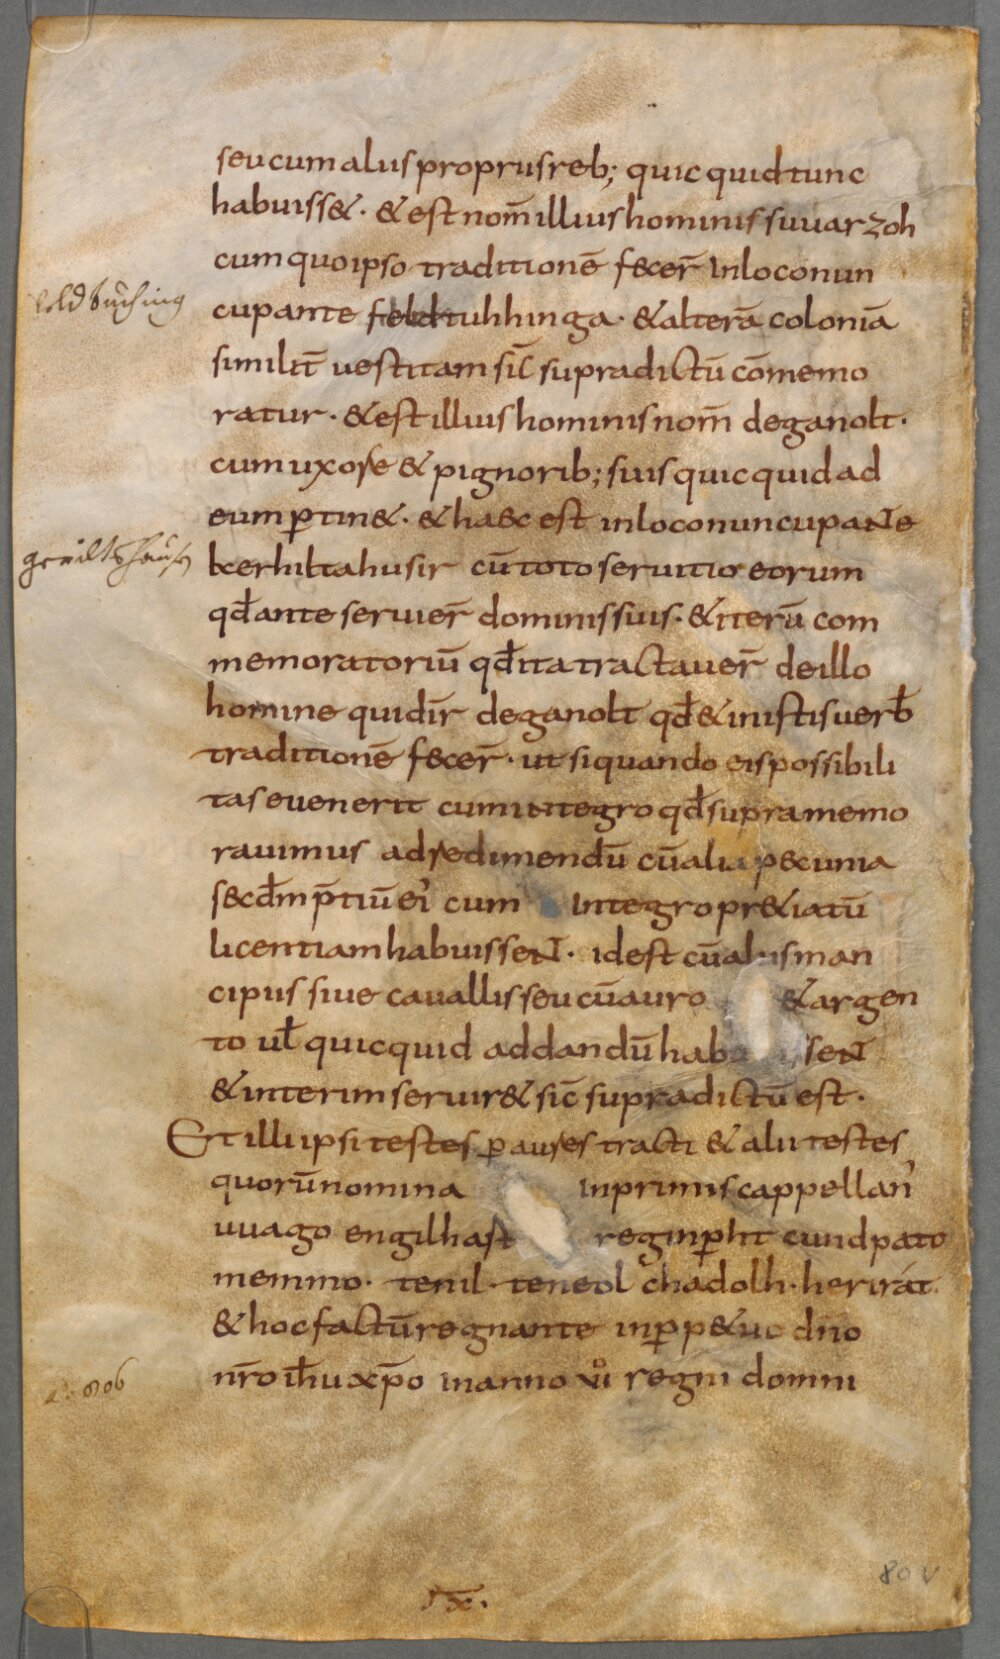 seu cum aliis propriis reb; quicquid tunc
habuiss&. & est nom̄ illius hominis suuarzoh
cum quo ipso traditionē fecer̄ In loco nun
feldtuching
cupante feldtuhhinga. & alterā coloniā
similit̄ uestitam sic̄ supradictū cōmemo
ratur. & est illius hominis nom̄ deganolt.
cum uxore & pignorib; suis quicquid ad
eum ꝑtin&. & haec est in loco nuncupaNte
kerhiltahusir cū toto seruitio eorum
qd̄ ante seruier̄ dominis suis. & iterū com
memoratoriū qd̄ ita tractauer̄ de illo
homine qui dir̄ deganolt qd̄ & in istis uerb̄
traditionē fecer̄. ut si quando eis possibili
tas euenerit cum integro qd̄ supra memo
rauimus ad redimendū cū alia pecunia
secdm̄ p̄tiū ei' cum Integro pr&iatū
licentiam habuisseNt. id est cū aliis man
cipiis siue cauallis seu cū auro & argen
to ul̄ quicquid ad dandū hab seNt
& interim seruir& sic̄ supradictū est.
Et illi ipsi testes ꝑ aures tracti & alii testes
quorū nomina Inprimis cappellan'
uuago engilhast reginꝑht cundpato
memmo. tenil. teneol chadolh. herirát.
& hoc factū regnante in ꝑp&uo dn̄o
nr̄o ih̄u xp̄o in anno uı̊ regni domni
806
80 v
IX.